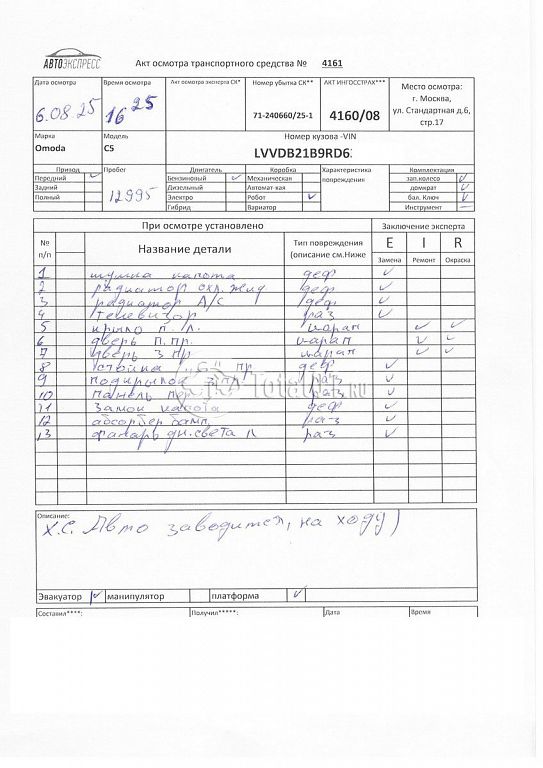 АВТОЭКСПРЕСС
Акт осмотра транспортного средства № 4161
Дата осмотра Время осмотра Акт осмотра эксперта СК* Номер убытка СК** АКТ ИНГОССТРАХ***
6.08.25 16 25 71-240660/25-1 4160/08
Место осмотра:
г. Москва,
ул. Стандартная д.6,
стр.17
Марка Модель Номер кузова -VIN
Omoda C5 LVVDB21B9RD6
Привод Пробег Двигатель Коробка Характеристика повреждения Комплектация
Передний Бензиновый Механическая зап.колесо
Задний 12995 Дизельный Автомат-кая домкрат
Полный Электро Робот бал. Ключ
Гибрид Вариатор Инструмент
При осмотре установлено Заключение эксперта
№ п/п Название детали Тип повреждения (описание см.Ниже E I R
Замена Ремонт Окраска
1 шумка капота деф
2 радиатор охл. жид деф
3 радиатор А/С деф
4 телевизор раз
5 крыло п. л. царап
6 дверь п.пр. царап
7 дверь з пр царап
8 стойка пр деф
9 подкрылок раз
10 панель раз
11 Замок капота деф
12 абсорбер бамп раз
13 фонарь дн.света л раз
TotalCar.RU
Описание:
Х.С. Авто заводится, на ходу)
Эвакуатор манипулятор платформа
Составил****: Получил*****: Дата Время